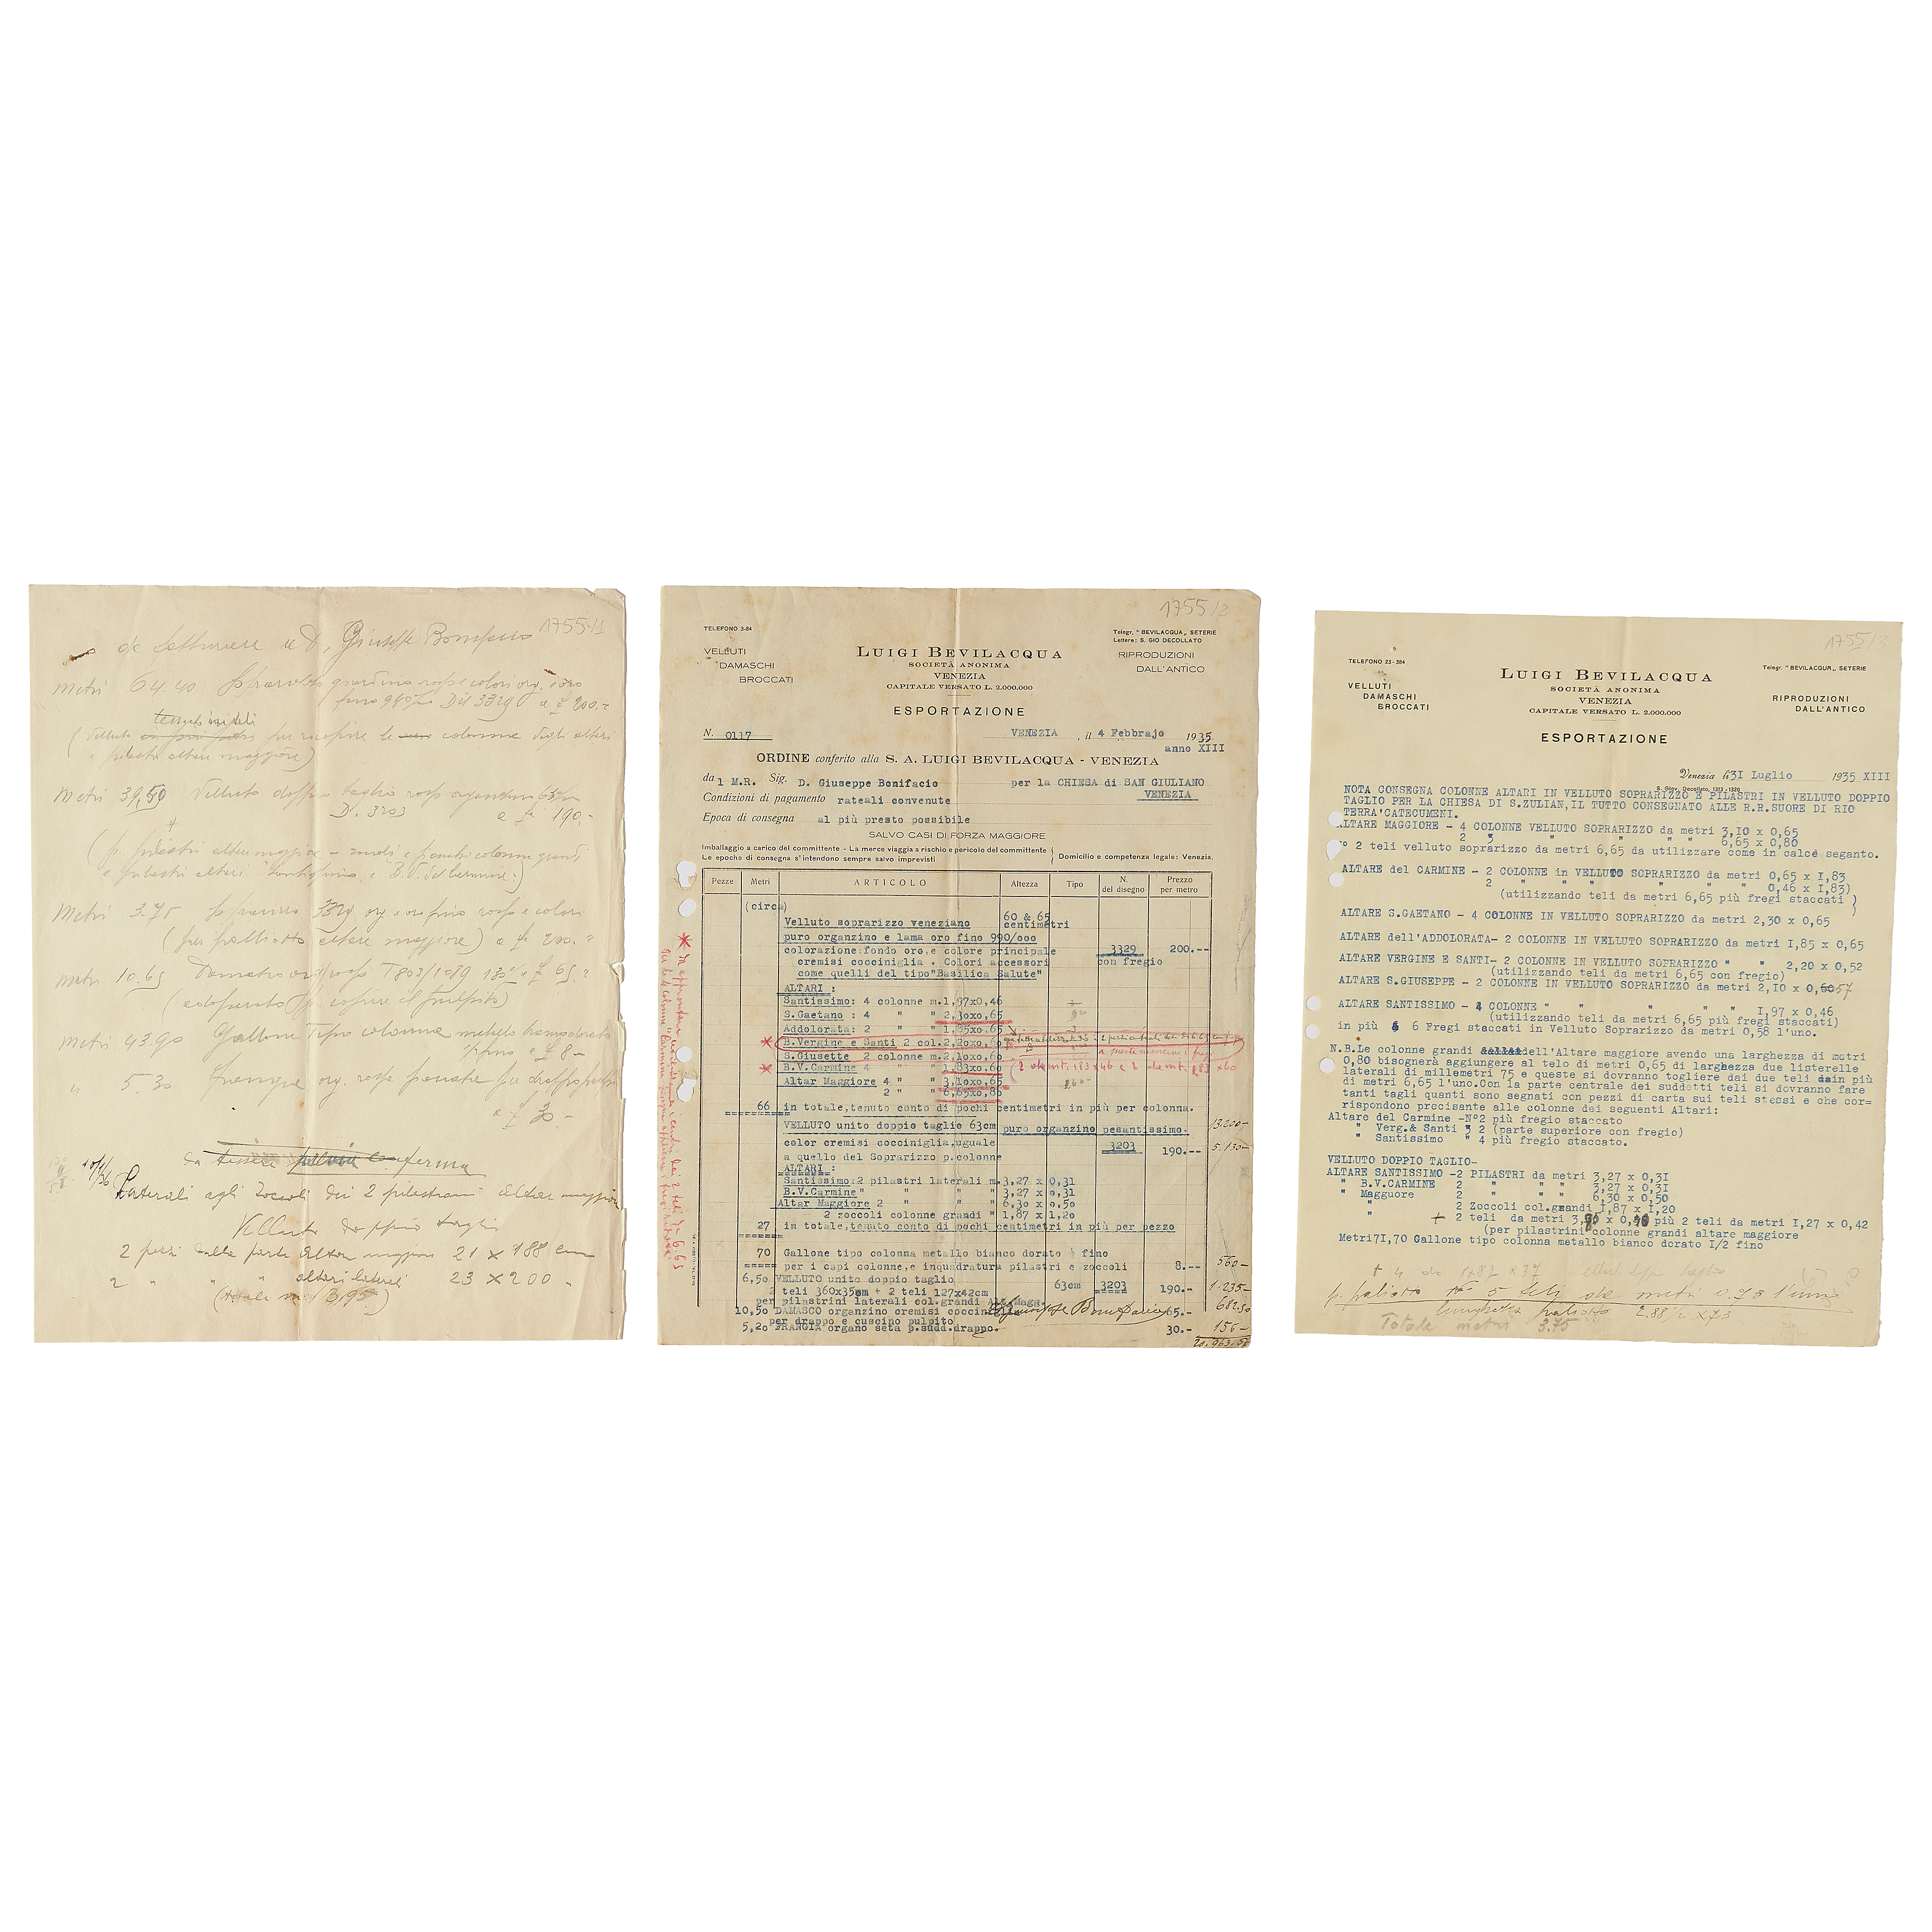 1755/1
da fatturare a D. Giuseppe Bonifacio
Metri 64.40 Soprarizzo giardino rosso e colori org. e oro
fino 990/oo Dis 3329 a £ 200.=
tenuti ori teli
(Velluto per ricoprire le colonne degli altari
e pilastri altare maggiore)
Metri 39,50 Velluto doppio taglio rosso organzino 63 cm
D. 3203 a £ 190.-
(p. pilastri altar maggiore - zoccoli e fianchi colonne grandi
e pilastri altari Santissimo e B.V. del Carmine)
Metri 3.75 Soprarizzo 3329 org. e oro fino rosso e colori
(per palliotto altare maggiore) a £ 200.=
Metri 10.65 Damasco org. rosso T 803/1089 130 a £ 65.=
(adoperato p. coprire il pulpito)
Metri 43.90 Gallone Tipo colonna metallo bianco dorato
1/2 fino a £ 8-
" 5.30 Frangia org. rosso per drappo pulpito
a £ 30.-
da tessere conferma
10/1/36 Laterali agli zoccoli dei 2 pilastrini altar maggiore
Velluto doppio taglio
2 pezzi dalla parte altar maggiore 21 x 188 cm
2 " " " altari laterali 23 x 200 "
(totale m 3,95)
1755/2
TELEFONO 3-84
Telegr. "BEVILACQUA„ SETERIE
Lettere: S. GIO DECOLLATO
VELLUTI
DAMASCHI
BROCCATI
LUIGI BEVILACQUA
SOCIETÀ ANONIMA
VENEZIA
CAPITALE VERSATO L. 2.000.000
RIPRODUZIONI
DALL'ANTICO
ESPORTAZIONE
N. 0117 VENEZIA, il 4 Febbrajo 1935
anno XIII
ORDINE conferito alla S. A. LUIGI BEVILACQUA - VENEZIA
da l M.R. Sig. D. Giuseppe Bonifacio per la CHIESA di SAN GIULIANO
VENEZIA
Condizioni di pagamento rateali convenute
Epoca di consegna al più presto possibile
SALVO CASI DI FORZA MAGGIORE
Imballaggio a carico del committente - La merce viaggia a rischio e pericolo del committente
Le epoche di consegna s'intendono sempre salvo imprevisti
Domicilio e competenza legale: Venezia.
Pezze Metri ARTICOLO Altezza Tipo N. del disegno Prezzo per metro
(circa)
Velluto soprarizzo veneziano 60 & 65 centimetri
puro organzino e lama oro fino 990/ooo
colorazione:fondo oro,e colore principale 3329 200.--
cremisi cocciniglia . Colori accessori con fregio
come quelli del tipo"Basilica Salute"
ALTARI :
Santissimo: 4 colonne m.1,97x0,46
S.Gaetano : 4 " " 2,30x0,65
Addolorata: 2 " " 1,85x0,65
* B.Vergine e Santi 2 col.2,20x0,60
S.Giusette 2 colonne m.2,10x0,60
* B.V.Carmine 4 " " 1,83x0,60 (2 da mt. 1.83x46 e 2 da mt. 1.83x60
Altar Maggiore 4 " " 3,10x0,65
2 " " 6,65x0,80
66 in totale,tenuto conto di pochi centimetri in più per colonna.
VELLUTO unito doppio taglio 63cm puro organzino pesantissimo. 13200-
color cremisi cocciniglia,uguale 3203 190.-- 5.130-
a quello del Soprarizzo p.colonne
ALTARI :
Santissimo:2 pilastri laterali m.3,27 x 0,31
B.V.Carmine" " " " 3,27 x 0,31
Altar Maggiore 2 " " 6,30 x 0,50
2 zoccoli colonne grandi " 1,87 x 1,20
27 in totale,tenuto conto di pochi centimetri in più per pezzo
70 Gallone tipo colonna metallo bianco dorato ½ fino
per i capi colonne,e inquadratura pilastri e zoccoli 8.-- 560-
6,50 VELLUTO unito doppio taglio 63cm 3203 190.- 1.235-
2 teli 360x35cm + 2 teli 127x42cm
per pilastrini laterali col.grandi Alt.Magg.
10,50 DAMASCO organzino cremisi cocciniglia 65.- 682.50
per drappo e cuscino pulpito
Giuseppe Bonifacio
5,20 FRANGIA organo seta p.sudd.drappo. 30.- 156-
20.963.50
1755/3
TELEFONO 23-384
Telegr. "BEVILACQUA„ SETERIE
VELLUTI
DAMASCHI
BROCCATI
LUIGI BEVILACQUA
SOCIETÀ ANONIMA
VENEZIA
CAPITALE VERSATO L. 2.000.000
RIPRODUZIONI
DALL'ANTICO
ESPORTAZIONE
Venezia li 3I Luglio 1935 XIII
S. Giov. Decollato, 1313 - 1320
NOTA CONSEGNA COLONNE ALTARI IN VELLUTO SOPRARIZZO E PILASTRI IN VELLUTO DOPPIO
TAGLIO PER LA CHIESA DI S.ZULIAN,IL TUTTO CONSEGNATO ALLE R.R.SUORE DI RIO
TERRA'CATECUMENI.
ALTARE MAGGIORE - 4 COLONNE VELLUTO SOPRARIZZO da metri 3,I0 x 0,65
2 " " " " " 6,65 x 0,80
N° 2 teli velluto soprarizzo da metri 6,65 da utilizzare come in calce seganto.
ALTARE del CARMINE - 2 COLONNE in VELLUTO SOPRARIZZO da metri 0,65 x I,83
2 " " " " " 0,46 x I,83)
(utilizzando teli da metri 6,65 più fregi staccati )
ALTARE S.GAETANO - 4 COLONNE IN VELLUTO SOPRARIZZO da metri 2,30 x 0,65
ALTARE dell'ADDOLORATA- 2 COLONNE IN VELLUTO SOPRARIZZO da metri I,85 x 0,65
ALTARE VERGINE E SANTI- 2 COLONNE IN VELLUTO SOPRARIZZO " " 2,20 x 0,52
(utilizzando teli da metri 6,65 con fregio)
ALTARE S.GIUSEPPE - 2 COLONNE IN VELLUTO SOPRARIZZO da metri 2,I0 x 0,60 57
ALTARE SANTISSIMO - 4 COLONNE " " " " " I,97 x 0,46
(utilizzando teli da metri 6,65 più fregi staccati)
in più 6 6 Fregi staccati in Velluto Soprarizzo da metri 0,58 l'uno.
N.B.Le colonne grandi dell'Altare maggiore avendo una larghezza di metri
0,80 bisognerà aggiungere al telo di metri 0,65 di larghezza due listerelle
laterali di millemetri 75 e queste si dovranno togliere dai due teli in più
di metri 6,65 l'uno.Con la parte centrale dei suddetti teli si dovranno fare
tanti tagli quanti sono segnati con pezzi di carta sui teli stessi e che cor=
rispondono precisante alle colonne dei seguenti Altari:
Altare del Carmine -N°2 più fregio staccato
" Verg.& Santi " 2 (parte superiore con fregio)
" Santissimo " 4 più fregio staccato.
VELLUTO DOPPIO TAGLIO-
ALTARE SANTISSIMO -2 PILASTRI da metri 3,27 x 0,3I
" B.V.CARMINE 2 " " " 3,27 x 0,3I
" Magguore 2 " " " 6,30 x 0,50
" 2 Zoccoli col.grandi I,87 x I,20
+ 2 teli da metri 3,96 x 0,40 più 2 teli da metri I,27 x 0,42
(per pilastrini colonne grandi altare maggiore
Metri7I,70 Gallone tipo colonna metallo bianco dorato I/2 fino
+ 4 da 1.87 x 37 vellut dopp taglio
p. paliotto N° 5 teli da metri 0.73 l'uno
lunghezza paliotto 2.88½ x 73
Totale metri 3.75